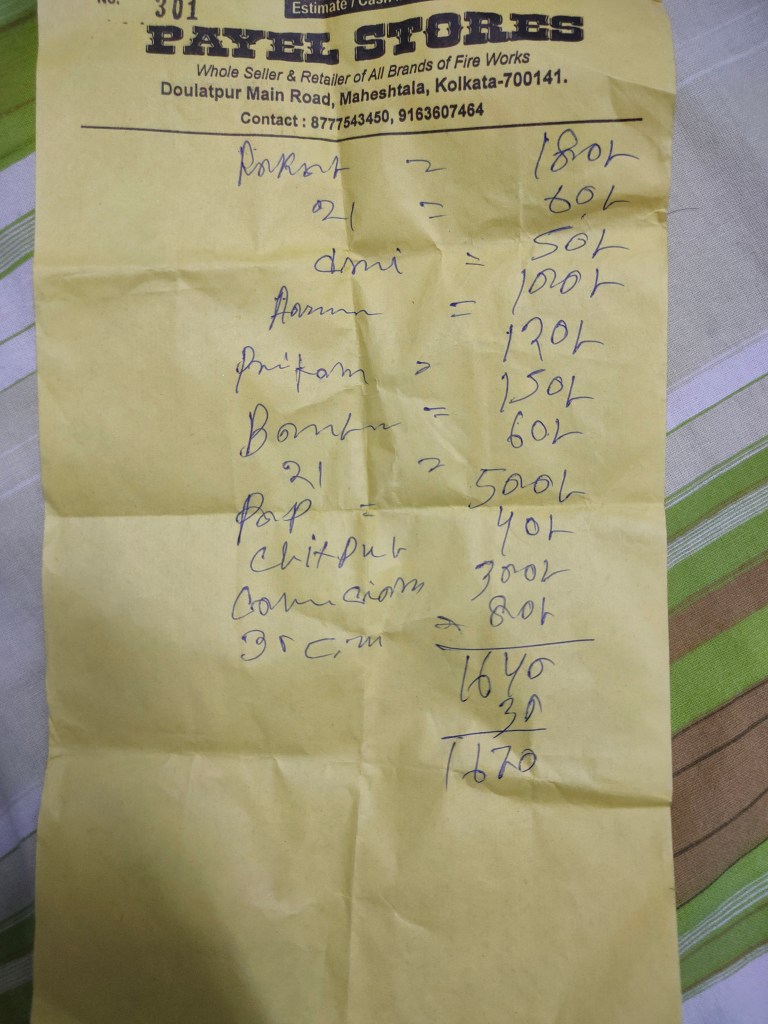 No. 301
Estimate / Cash
PAYEL STORES
Whole Seller & Retailer of All Brands of Fire Works
Doulatpur Main Road, Maheshtala, Kolkata-700141.
Contact : 8777543450, 9163607464
= 180/-
21 = 60/-
= 50/-
= 100/-
Pritam = 120/-
= 150/-
21 = 60/-
Pop = 500/-
Chitput 40/-
300/-
30 cm = 80/-
1640
30
1670